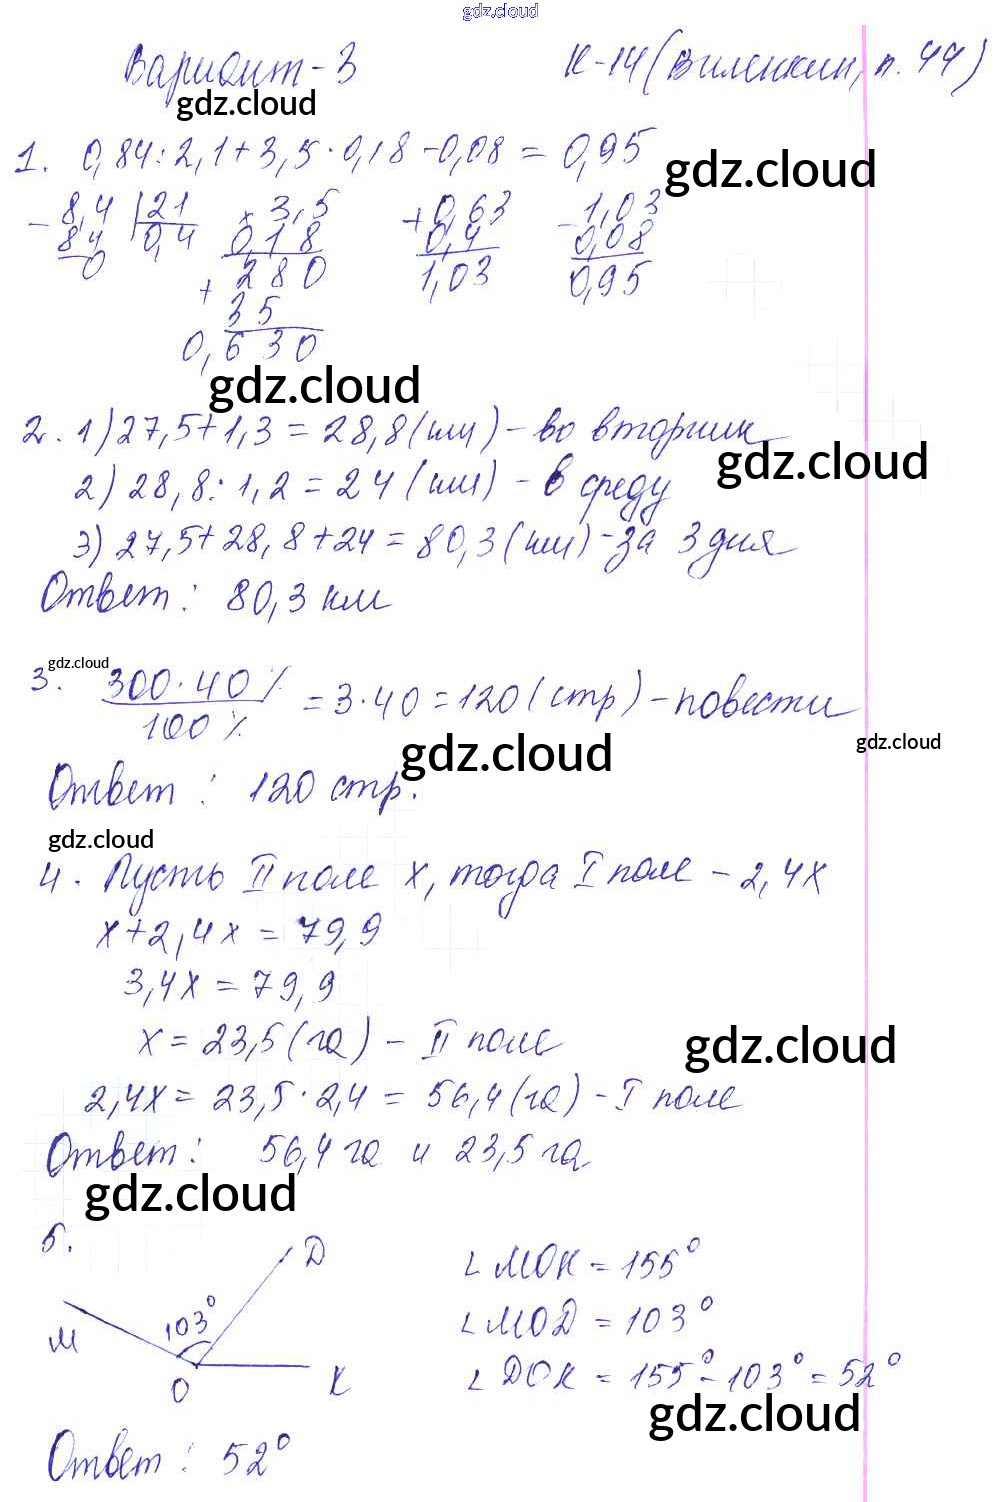 gdz.cloud
Вариант-3 К-14 (Виленкин, п. 44)
gdz.cloud
1. 0,84:2,1+3,5·0,18-0,08=0,95
gdz.cloud
- 8,4 | 21 × 3,5 + 0,63 - 1,03
84 0,4 0,18 0,4 0,08
0 + 280 1,03 0,95
35
0,630
gdz.cloud
2. 1) 27,5+1,3=28,8 (км) - во вторник
gdz.cloud
2) 28,8:1,2=24 (км) - в среду
3) 27,5+28,8+24=80,3 (км) - за 3 дня
Ответ: 80,3 км
gdz.cloud
3. 300·40% / 100% = 3·40=120 (стр) - повести
gdz.cloud
gdz.cloud
Ответ: 120 стр.
gdz.cloud
4. Пусть II поле x, тогда I поле - 2,4x
x+2,4x=79,9
3,4x=79,9
x=23,5 (га) - II поле
gdz.cloud
2,4x=23,5·2,4=56,4 (га) - I поле
Ответ: 56,4 га и 23,5 га
gdz.cloud
5.
Д
∠MOK=155°
103°
M
∠MOД=103°
O
K
∠ДOK=155°-103°=52°
gdz.cloud
Ответ: 52°